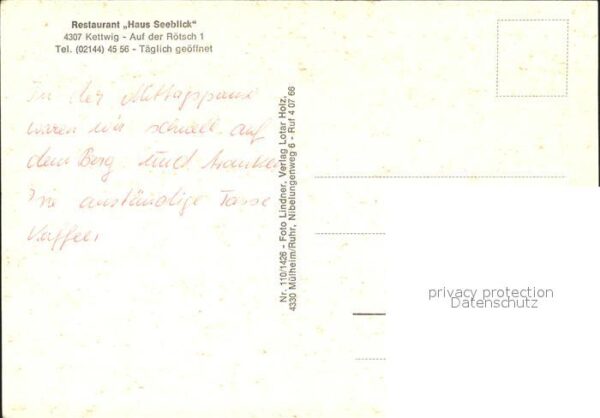 Restaurant „Haus Seeblick"
4307 Kettwig - Auf der Rötsch 1
Tel. (02144) 45 56 - Täglich geöffnet
In der Mittagspause
waren wir schnell auf
dem Berg und tranken
eine anständige Tasse
Kaffee.
Nr. 110/1426 - Foto Lindner, Verlag Lotar Holz,
4330 Mülheim/Ruhr, Nibelungenweg 6 - Ruf 4 07 66
privacy protection
Datenschutz